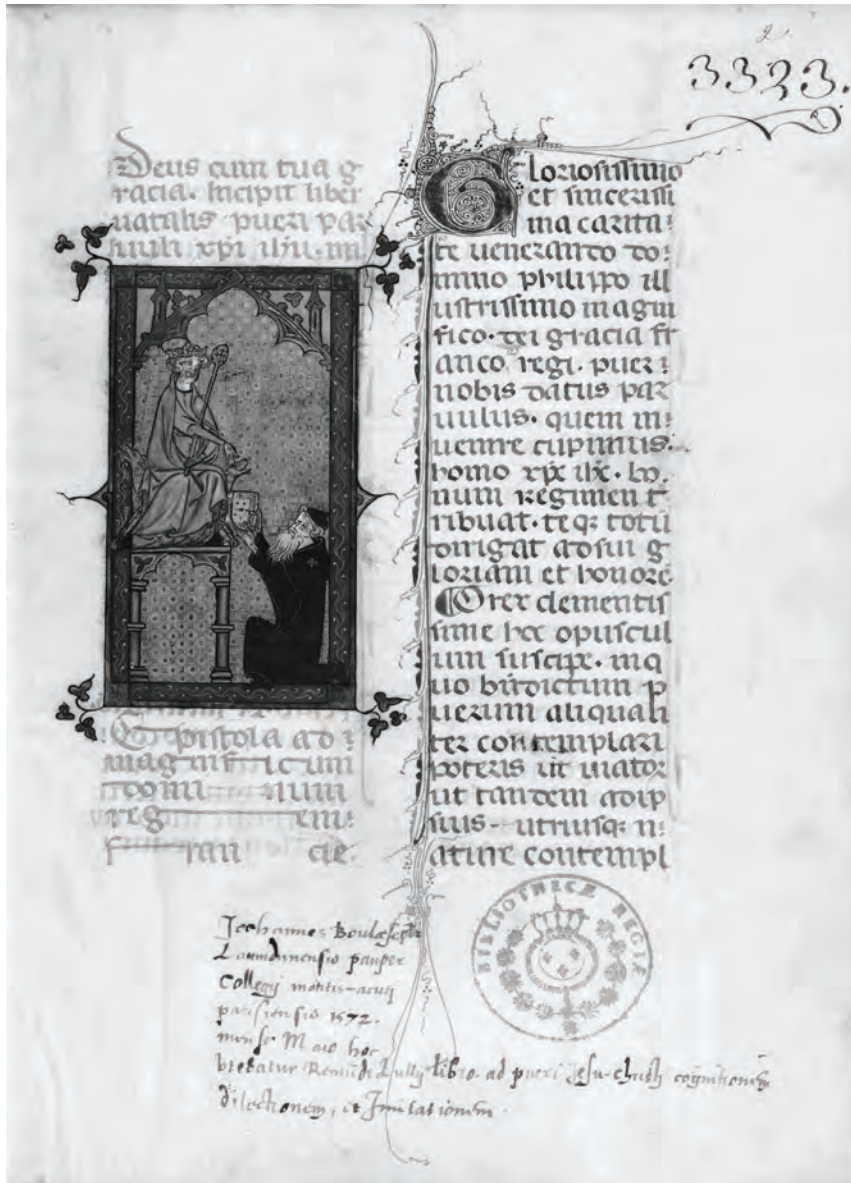 2.
3323.
Deus cum tua g
racia. Incipit liber
natalis pueri par
uuli xpi ihu. mi
Epistola ad :
magnificum
domi num
reg em:
fran cie.
Gloriosissimo
et sincerissi
ma carita:
te uenerando do:
mino philippo ill
ustrissimo magni
fico. dei gracia fr
anco regi. puer :
nobis datus par
uulus. quem in:
uenire cupimus.
homo xpc ihc. bo.
num regimen t
ribuat. te q; totu
dirigat ad sui g
loriam et honore.
O rex clementis
sime hoc opuscul
um suscipe. in q
uo bndictum p
uerum aliquali
ter contemplari
poteris ut uiator
ut tandem adip
iscens utriusq; n:
ature contempl
Johannes Boulæse
pauper
Collegij montis-acuti
parisiensis 1572.
mense Maio hoc
utebatur Remudi Lullij libro. ad pueri Jesu-christi cognitionem
dilectionem, et Imitationem.
BIBLIOTHECÆ REGIÆ